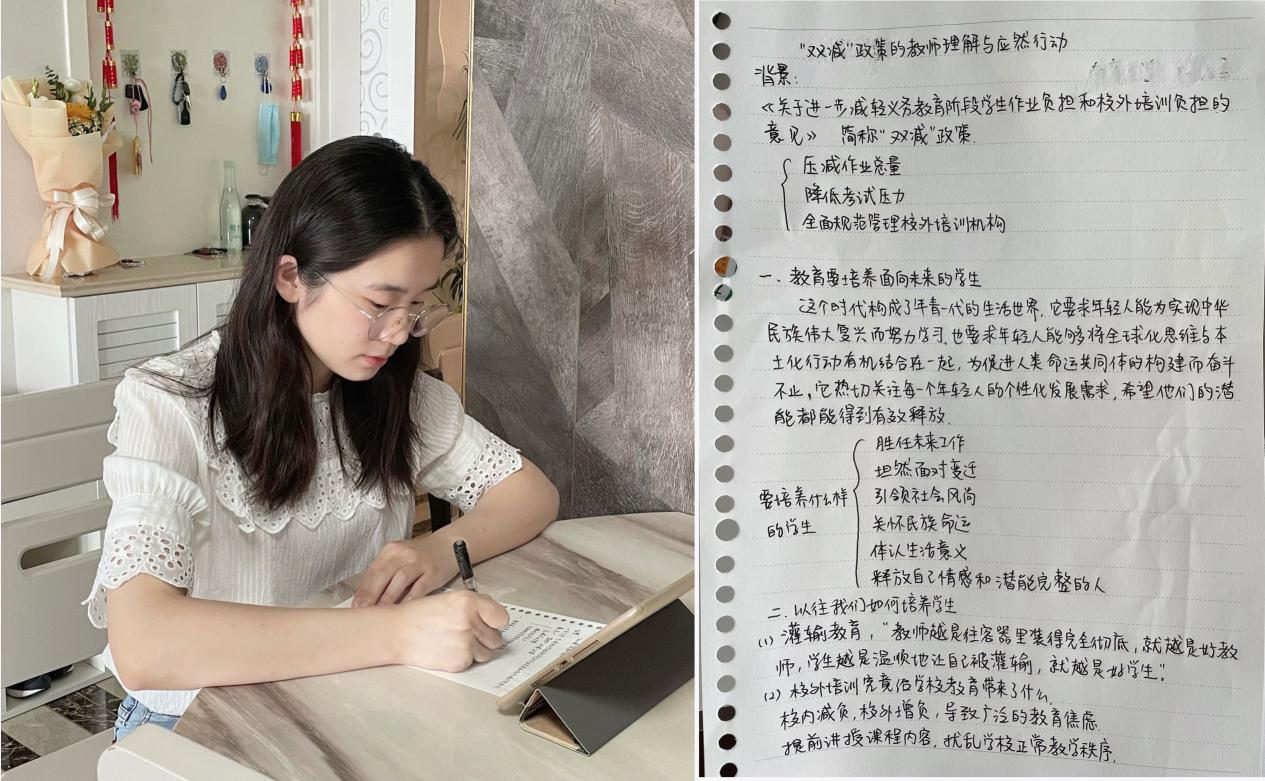 "双减"政策的教师理解与应然行动
背景:
《关于进一步减轻义务教育阶段学生作业负担和校外培训负担的
意见》 简称"双减"政策.
压减作业总量
降低考试压力
全面规范管理校外培训机构
一、教育要培养面向未来的学生
这个时代构成了年青一代的生活世界,它要求年轻人能为实现中华
民族伟大复兴而努力学习,也要求年轻人能够将全球化思维与本
土化行动有机结合在一起,为促进人类命运共同体的构建而奋斗
不止,它热切关注每一个年轻人的个性化发展需求,希望他们的潜
能都能得到有效释放.
要培养什么样
的学生
胜任未来工作
坦然面对变迁
引领社会风尚
关怀民族命运
体认生活意义
释放自己情感和潜能完整的人
二、以往我们如何培养学生
(1) 灌输教育,"教师越是往容器里装得完全彻底,就越是好教
师,学生越是温顺地让自己被灌输,就越是好学生。"
(2) 校外培训究竟给学校教育带来了什么.
校内减负,校外增负,导致广泛的教育焦虑.
提前讲授课程内容,扰乱学校正常教学秩序.